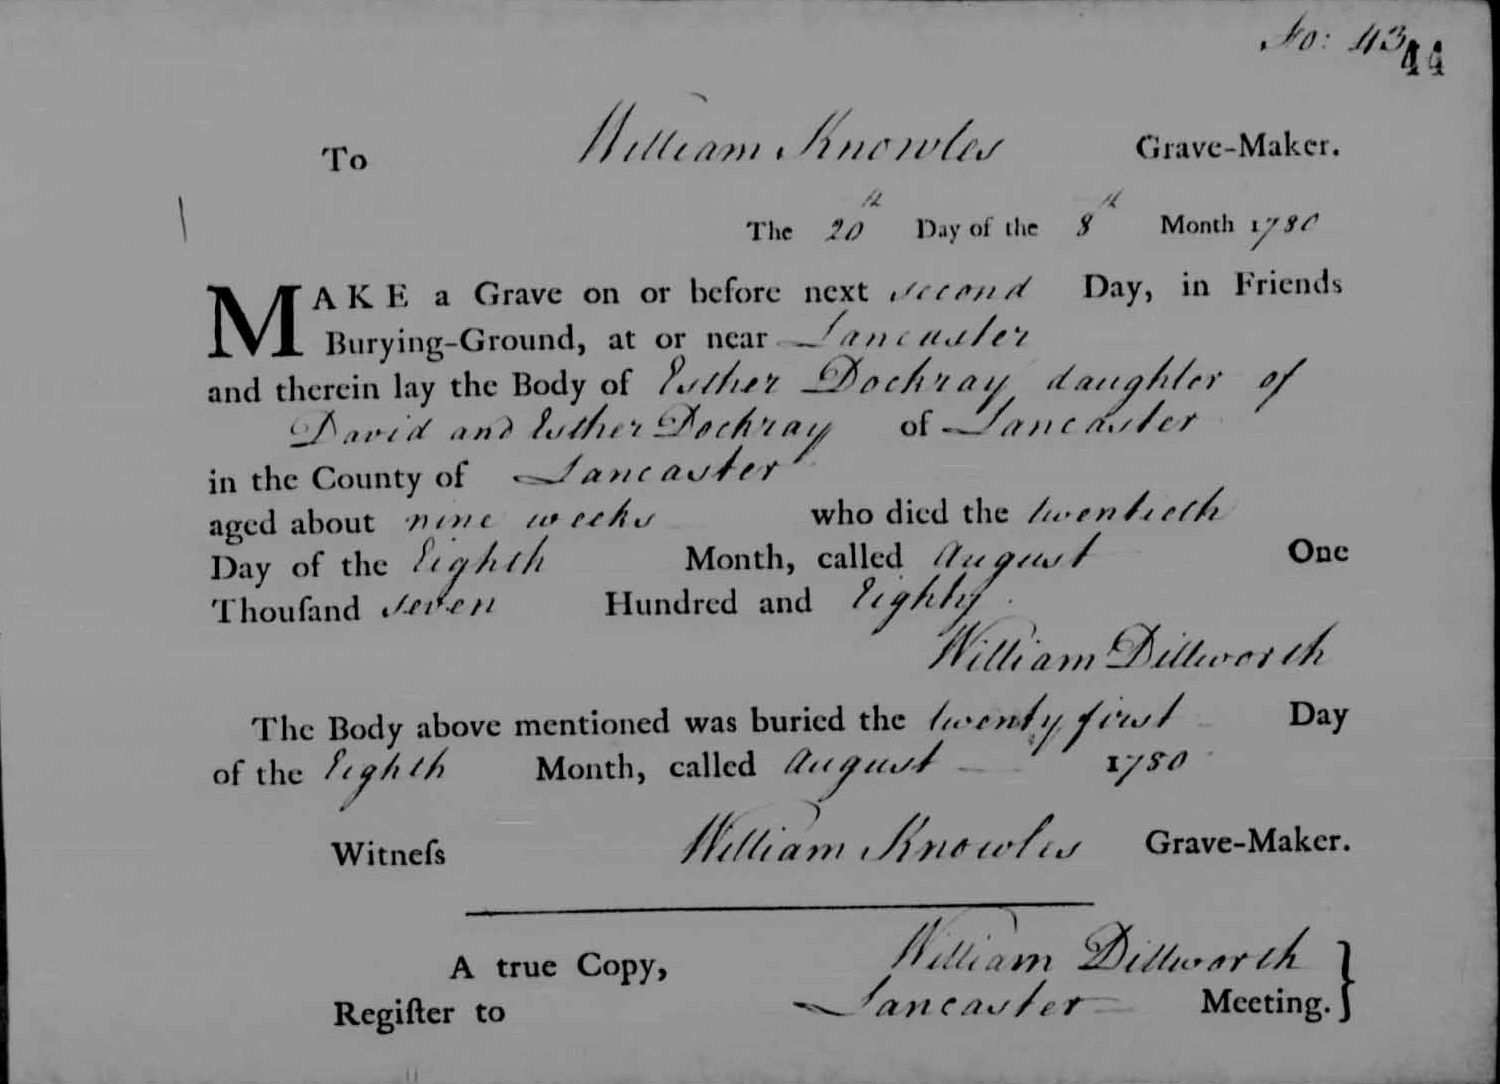 No: 43
44
To William Knowles Grave-Maker.
The 20th Day of the 8th Month 1780
MAKE a Grave on or before next second Day, in Friends
Burying-Ground, at or near Lancaster
and therein lay the Body of Esther Dockray daughter of
David and Esther Dockray of Lancaster
in the County of Lancaster
aged about nine weeks who died the twentieth
Day of the Eighth Month, called August One
Thouſand seven Hundred and Eighty.
William Dillworth
The Body above mentioned was buried the twenty first Day
of the Eighth Month, called August 1780
Witneſs William Knowles Grave-Maker.
A true Copy, William Dillworth
Regiſter to Lancaster Meeting.}